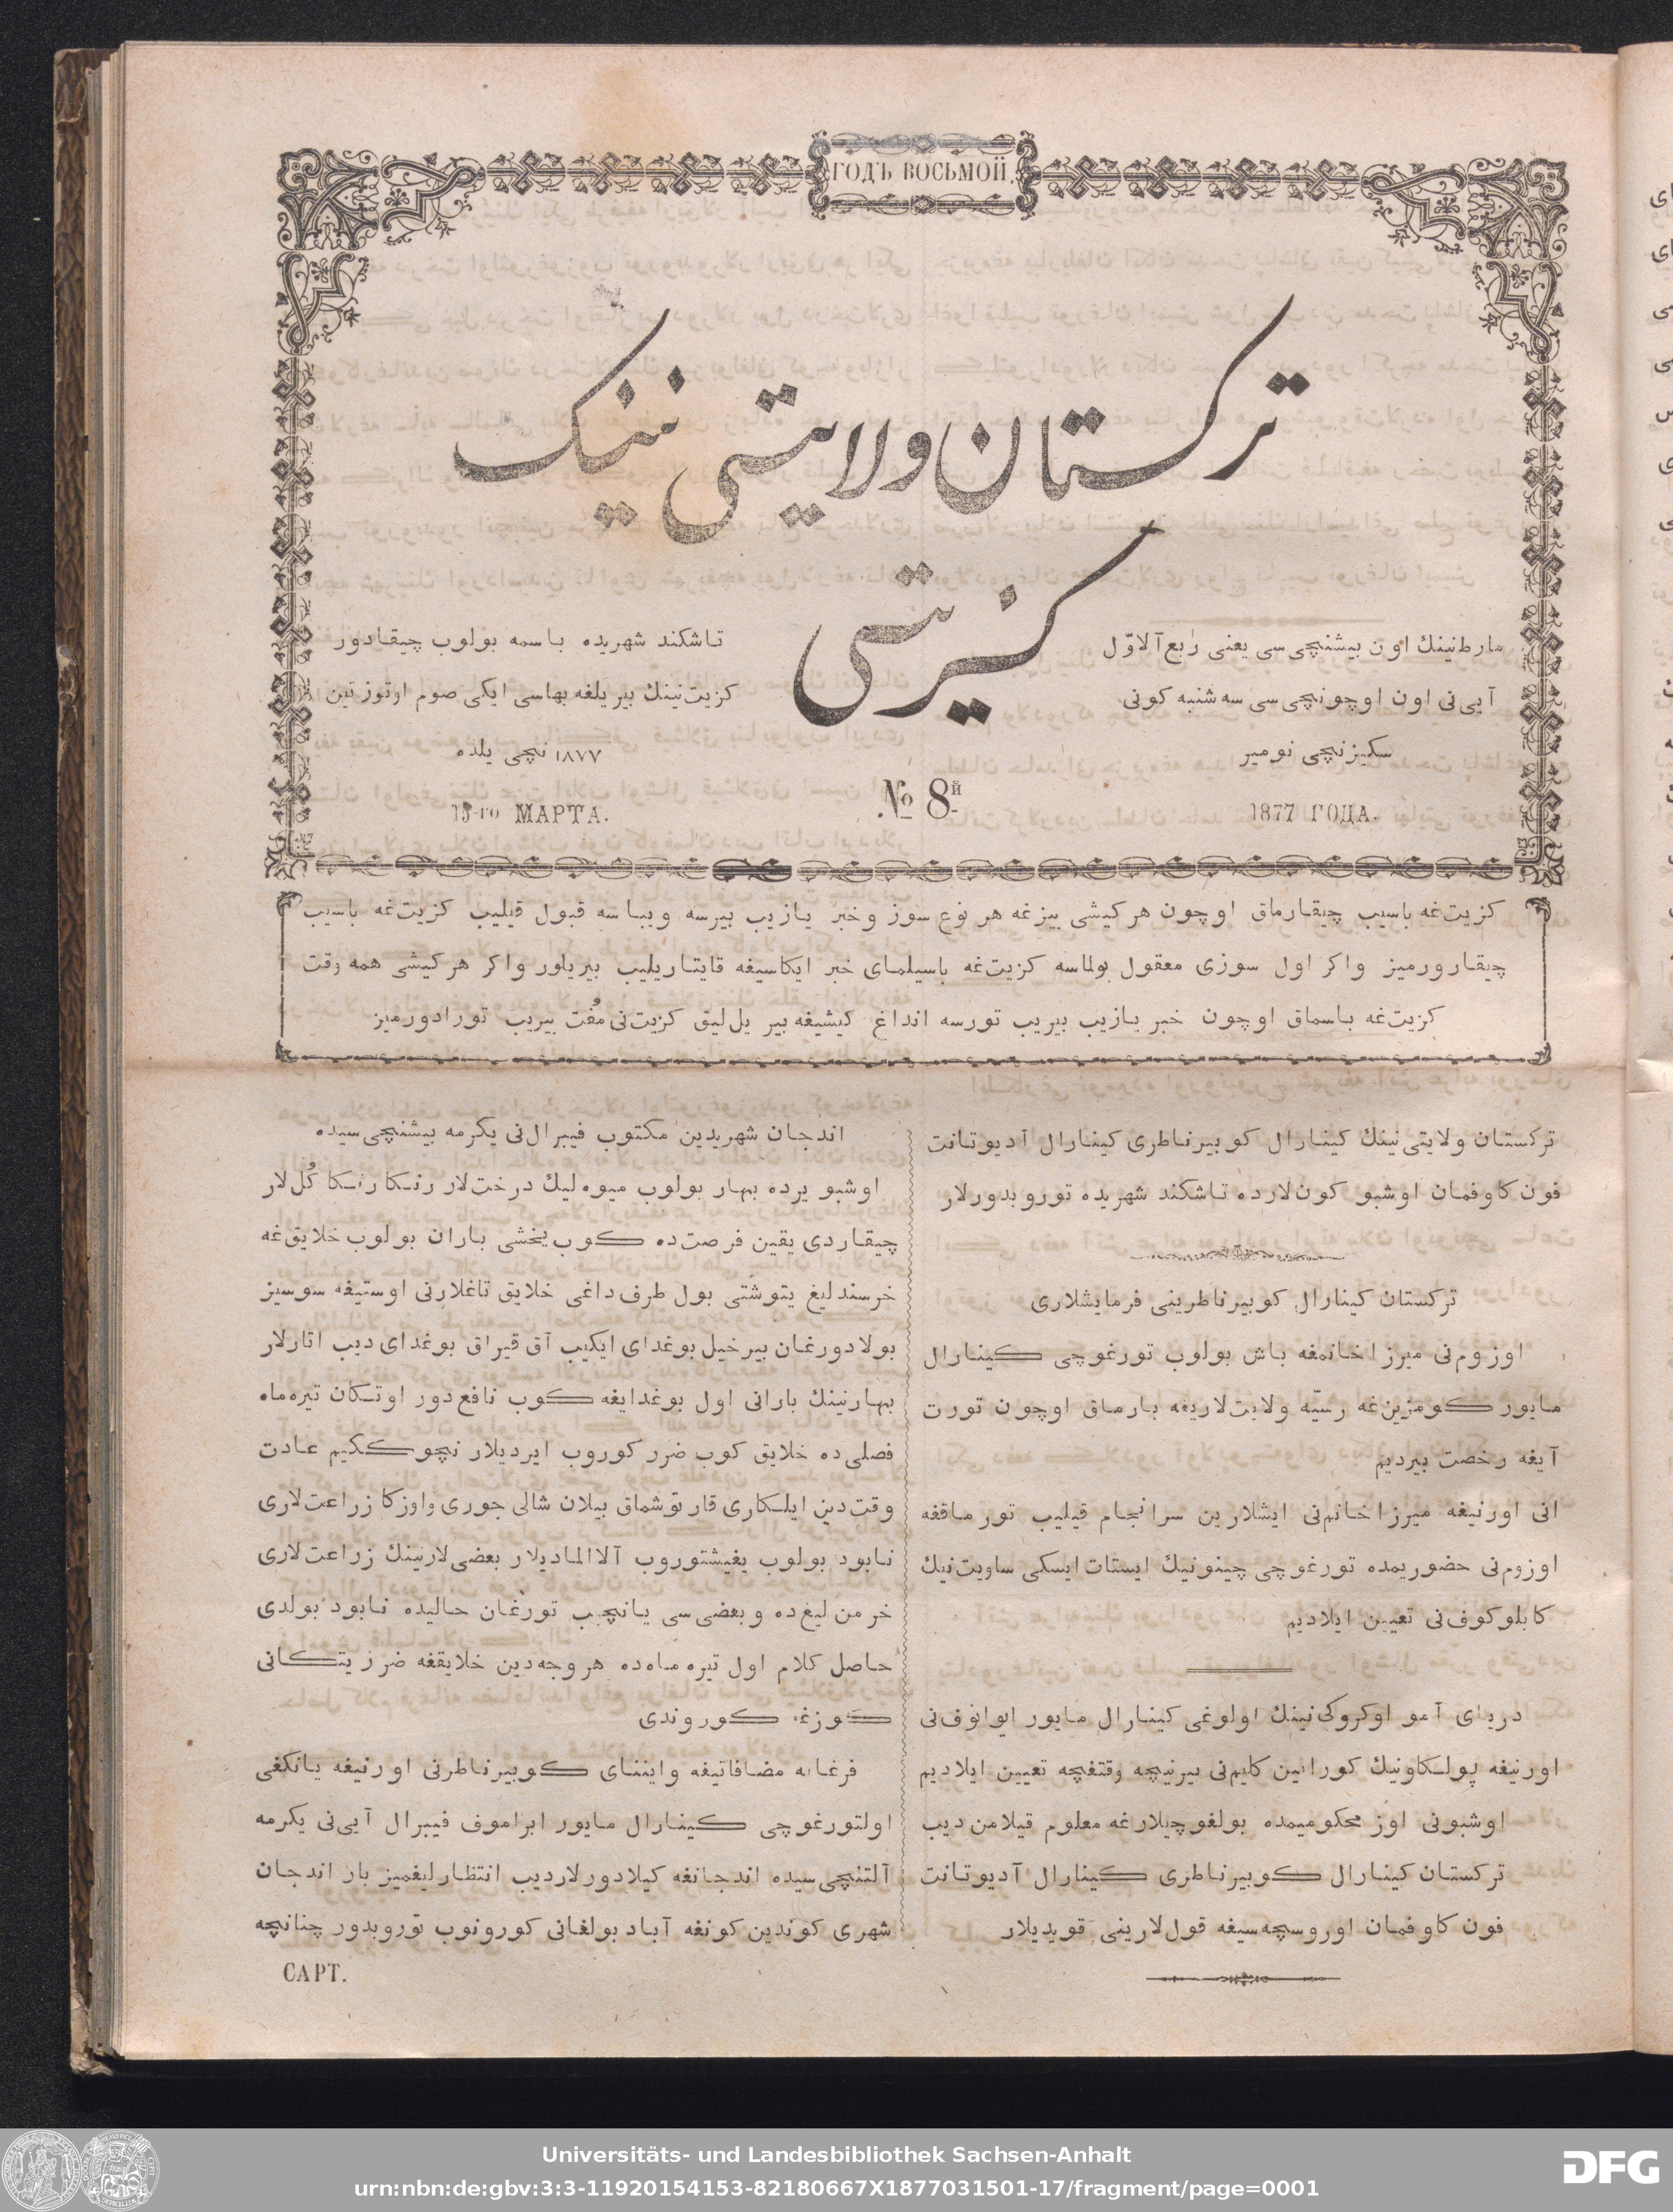 ГОДЪ ВОСЬМОЙ.
ترکستان ولایتی نینک
کزیتی
مارط‌نینك اون بیشنچی‌سی یعنی ربع آلاوّل
آیی‌نی اون اوچونچی‌سی سه شنبه کونی
سکیزنچی نومیر
تاشکند شهریده باسمه بولوب چیقادور
کزیت‌نینك بیر یلغه بهاسی ایکی صوم اوتوز تین
۱۸۷۷ نچی یلده
15-го МАРТА.
№ 8й
1877 ГОДА.
کزیت‌غه باسیب چیقارماق اوچون هر کیشی بیزغه هر نوع سوز و خبر یازیب بیرسه و یباسه قبول قیلیب کزیت‌غه باسیب
چیقارورمیز واکر اول سوزی معقول بولماسه کزیت‌غه باسیلمای خبر ایکاسیغه قایتاریلیب بیریلور واکر هر کیشی همه وقت
کزیت‌غه باسماق اوچون خبر یازیب بیریب تورسه انداغ کیشیغه بیر یل‌لیق کزیت‌نی مُفت بیریب تورادورمیز
ترکستان ولایتی‌نینك کینارال کوبیرناطری کینارال آدیوتانت
فون کاوفمان اوشبو کون‌لارده تاشکند شهریده توروبدورلار
ترکستان کینارال کوبیرناطرینی فرمایشلاری
اوزوم‌نی میرزا خانمغه باش بولوب تورغوچی کینارال
مایور کومزین‌غه رسیّه ولایت‌لاریغه بارماق اوچون تورت
آیغه رخصت بیردیم
انی اورنیغه میرزا خانم‌نی ایشلارین سرانجام قیلیب تورماقغه
اوزوم‌نی حضوریمده تورغوچی چینونیك ایستات ایسکی ساویت‌نیك
کابلوکوف‌نی تعیین ایلادیم
دریای آمو اوکروکی‌نینك اولوغی کینارال مایور ایوانوف‌نی
اورنیغه پولکاونیك کوراتین کلیم‌نی بیرنیچه وقتغچه تعیین ایلادیم
اوشبونی اوز محکومیمده بولغوچیلارغه معلوم قیلامن دیب
ترکستان کینارال کوبیرناطری کینارال آدیوتانت
فون کاوفمان اوروسچه‌سیغه قول‌لارینی قویدیلار
اندجان شهریدین مکتوب فیبرال‌نی یکرمه بیشنچی‌سیده
اوشبو یرده بهار بولوب میوه‌لیك درخت‌لار رنکا رنکا کُل‌لار
چیقاردی یقین فرصت‌ده کوب یخشی باران بولوب خلایق‌غه
خرسندلیغ یتوشتی بول طرف داغی خلایق تاغلارنی اوستیغه سوسیز
بولادورغان بیر خیل بوغدای ایکیب آق قیراق بوغدای دیب اتارلار
بهارنینك بارانی اول بوغدایغه کوب نافع دور اوتکان تیره‌ماه
فصلی‌ده خلایق کوب ضرر کوروب ایردیلار نچوککیم عادت
وقت‌دین ایلکاری قار توشماق بیلان شالی جوری واوزکا زراعت‌لاری
نابود بولوب یغیشتوروب آلاالمادیلار بعضی‌لارنینك زراعت‌لاری
خرمن لیغ‌ده و بعضی‌سی یانچیب تورغان حالیده نابود بولدی
حاصل کلام اول تیره ماه‌ده هر وجه‌دین خلایقغه ضرر یتکانی
کوزغه کوروندی
فرغانه مضافاتیغه واینّای کوبیرناطرنی اورنیغه یانکفی
اولتورغوچی کینارال مایور ابراموف فیبرال آیی‌نی یکرمه
آلتنچی‌سیده اندجانغه کیلادورلاردیب انتظارلیغمیز بار اندجان
شهری کوندین کونغه آباد بولغانی کورونوب توروبدور چنانچه
САРТ.
Universitäts- und Landesbibliothek Sachsen-Anhalt
urn:nbn:de:gbv:3:3-11920154153-82180667X1877031501-17/fragment/page=0001
DFG